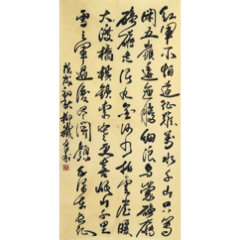 红军不怕远征难万水千山只等
闲五岭逶迤腾细浪乌蒙磅
礴走泥丸金沙水拍云崖暖
大渡桥横铁索寒更喜岷山千里
雪三军过后尽开颜毛泽东长征
戊戌初秋